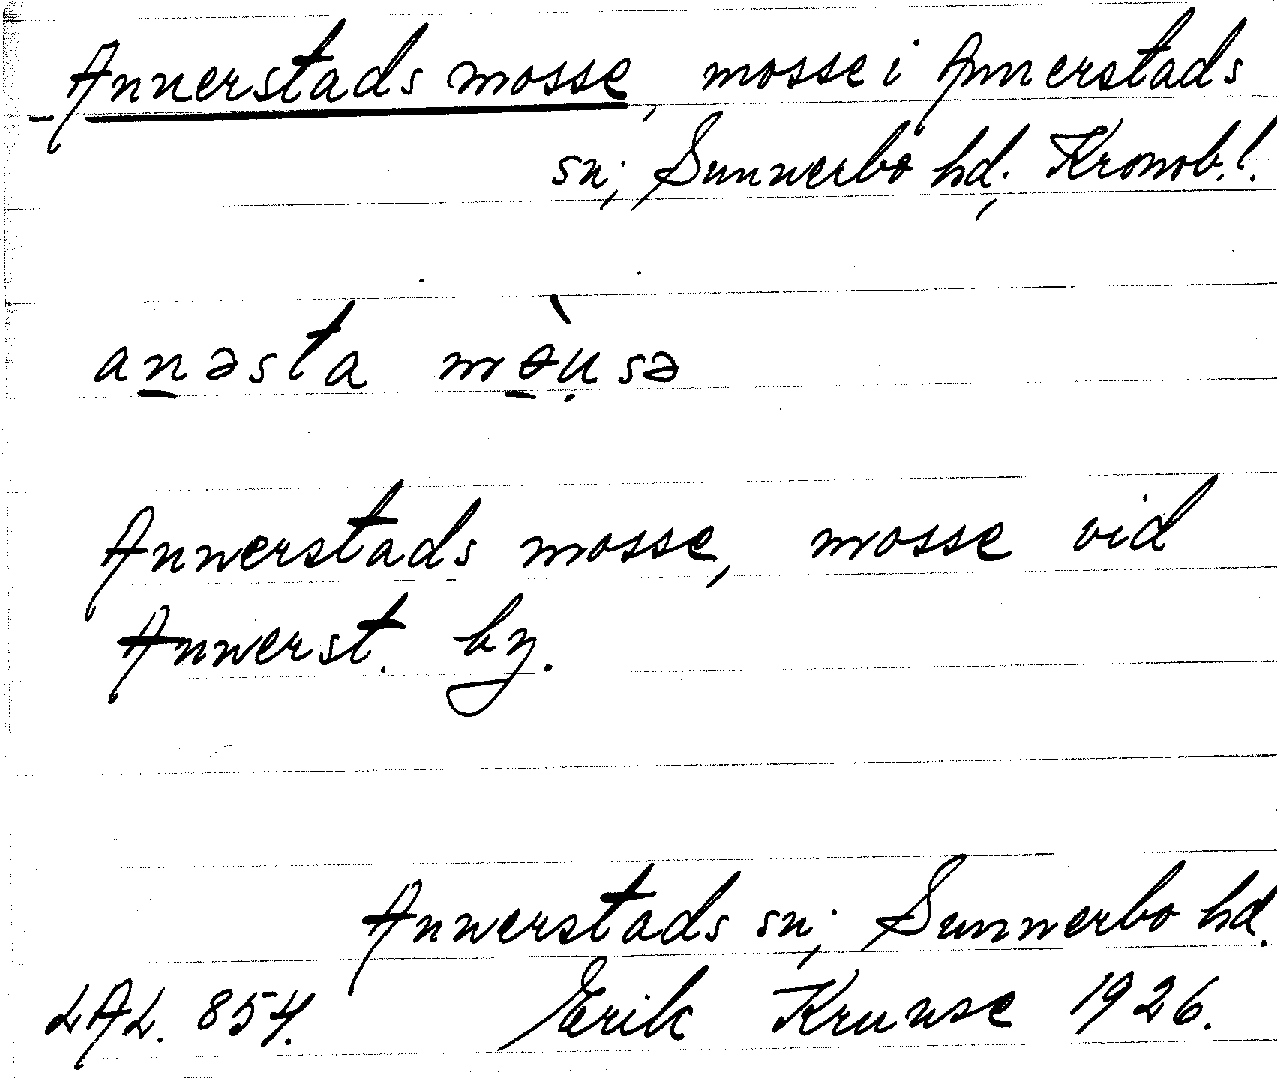 Annerstads mosse, mosse i Annerstads
sn; Sunnerbo hd; Kronob. l.
anəsta mə̀u̩sə
Annerstads mosse, mosse vid
Annerst. by.
Annerstads sn; Sunnerbo hd.
LAL. 854. Erik Kruuse 1926.